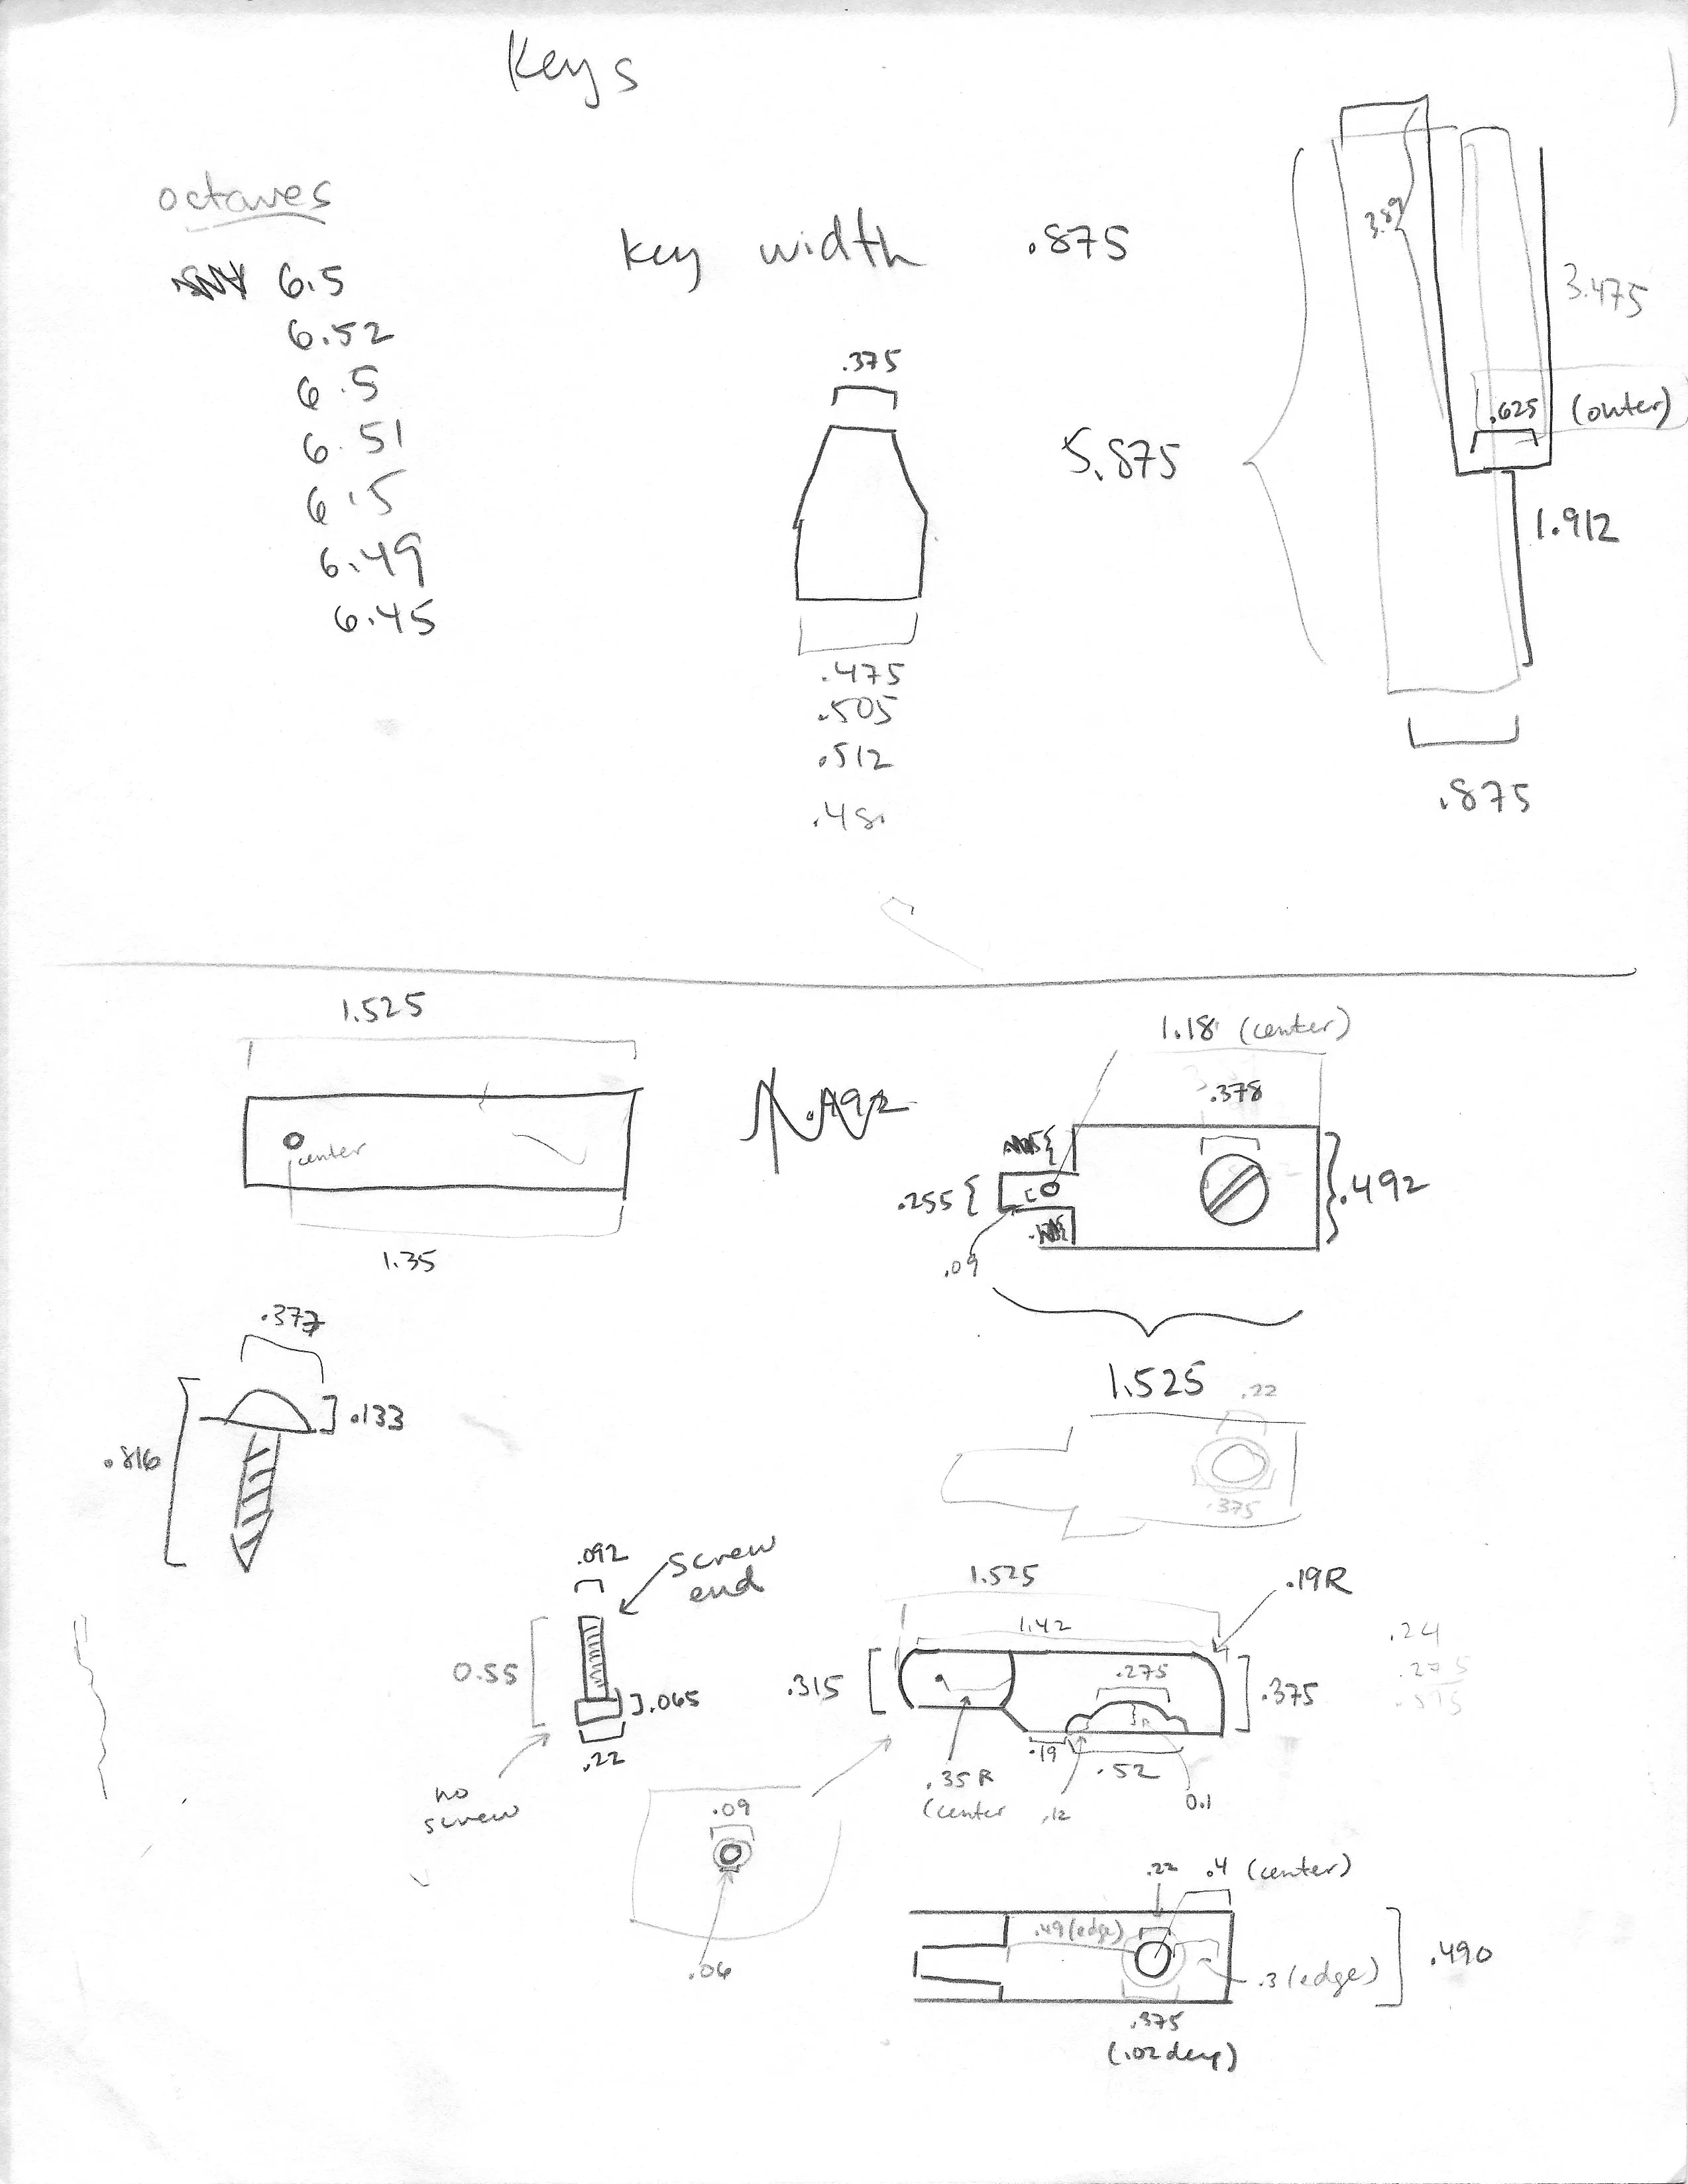 Keys
octaves
6.5
6.52
6.5
6.51
6.5
6.49
6.45
key width .875
.375
.475
.505
.512
.48
5.875
3.89
3.475
.625 (outer)
1.912
.875
1.525
center
1.35
.492
1.18 (center)
.378
.255
.09
.492
1.525
.22
.375
.377
.133
.816
.092
screw
end
0.55
.065
.22
no
screw
.09
.06
1.525
.19R
1.42
.275
.315
.375
.19
.52
.35R
(center
.12
0.1
.24
.275
.22 .4 (center)
.49 (edge)
.3 (edge)
.490
.375
(.02 deep)